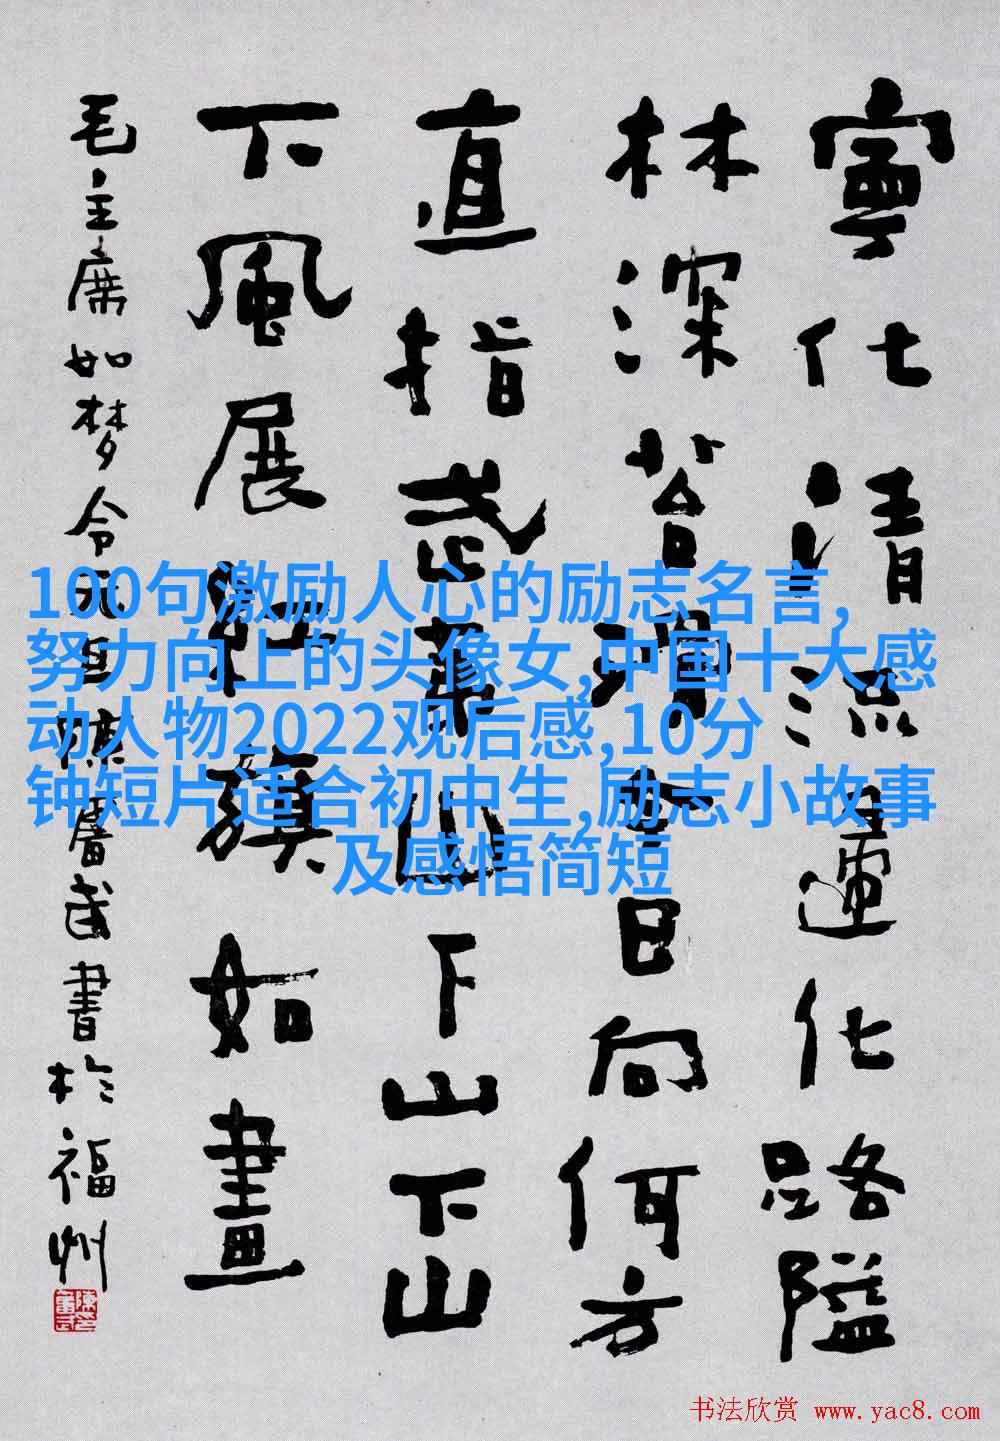 寧化清流化路隘
林深苔滑今日向何方
直指武夷山下山下山
下風展紅旗如畫
毛主席如梦令元旦陳奮武書於福州
100句激励人心的励志名言,
努力向上的头像女,中国十大感
动人物2022观后感,10分
钟短片适合初中生,励志小故事
及感悟简短
书法欣赏 www.yac8.com